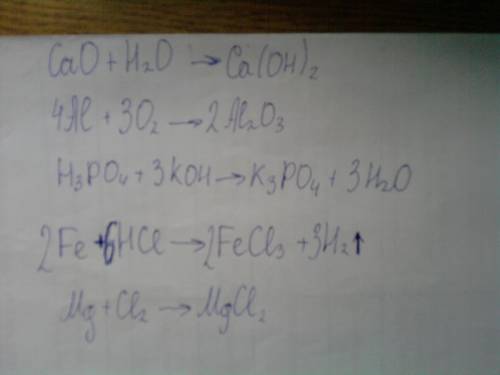 CaO + H₂O → Ca(OH)₂
4Al + 3O₂ → 2Al₂O₃
H₃PO₄ + 3KOH → K₃PO₄ + 3H₂O
2Fe + 6HCl → 2FeCl₃ + 3H₂↑
Mg + Cl₂ → MgCl₂